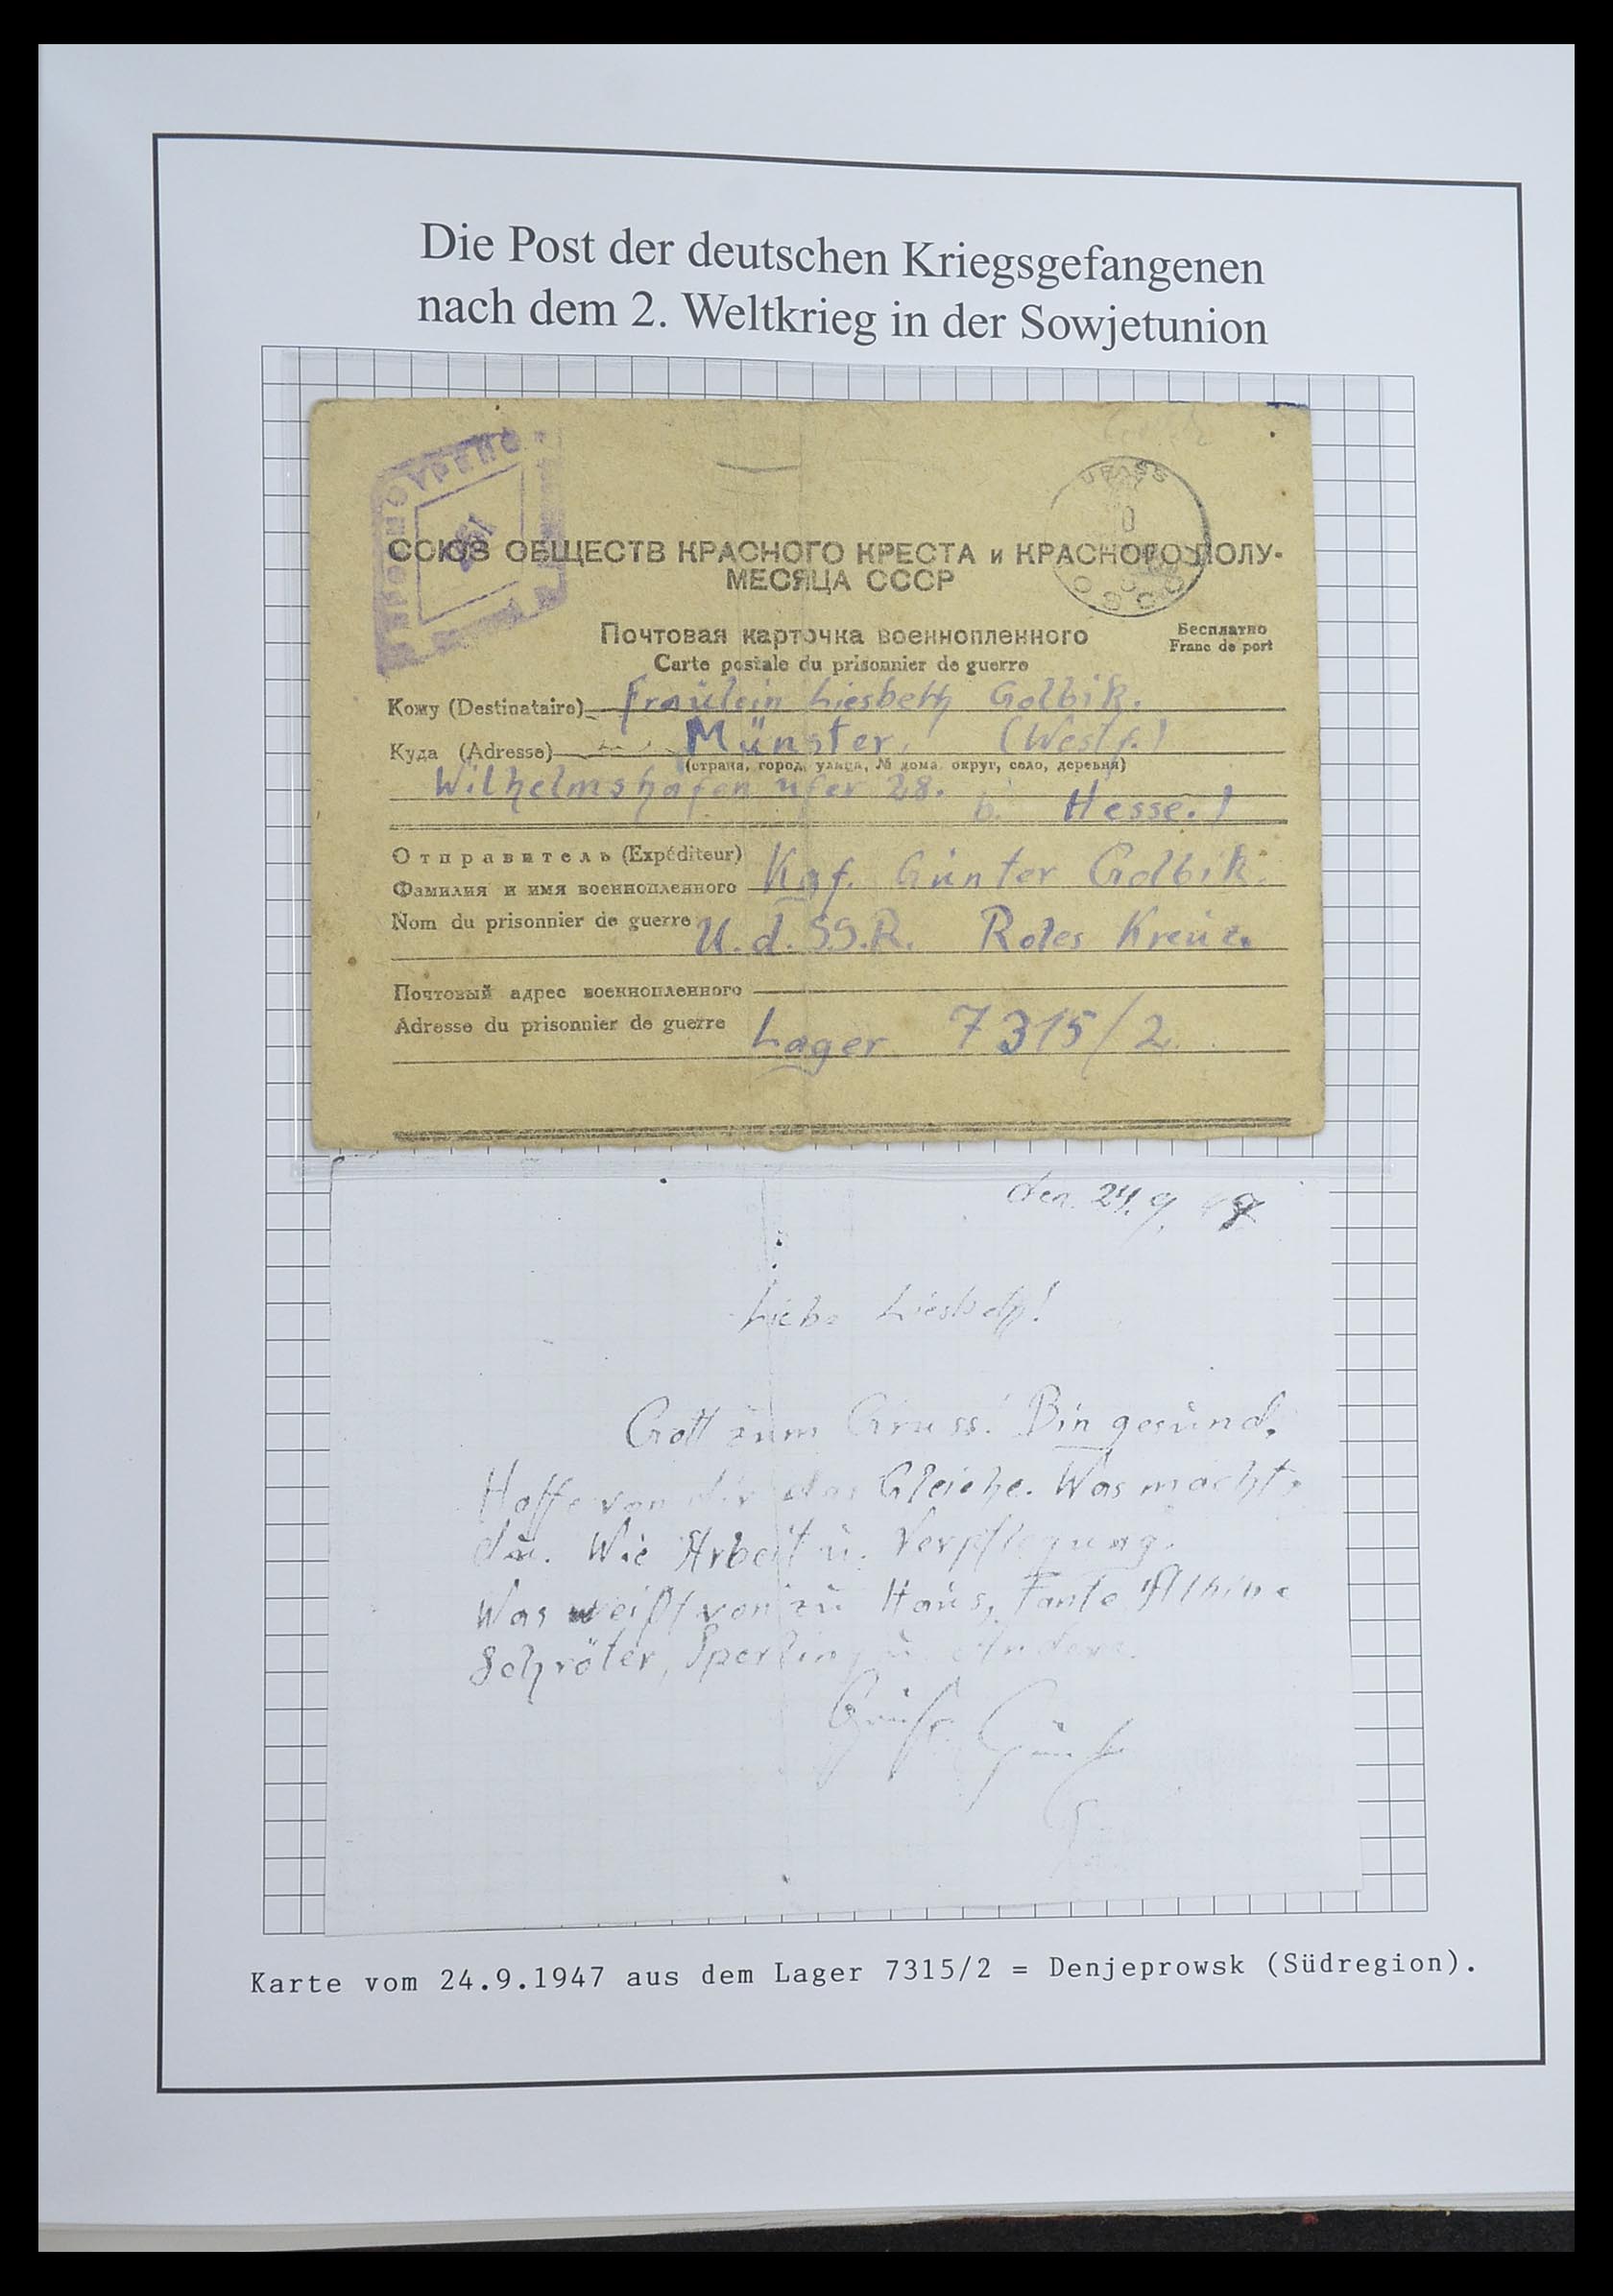 Die Post der deutschen Kriegsgefangenen
nach dem 2. Weltkrieg in der Sowjetunion
СОЮЗ ОБЩЕСТВ КРАСНОГО КРЕСТА и КРАСНОГО ПОЛУ-
МЕСЯЦА СССР
Почтовая карточка военнопленного
Бесплатно
Carte postale du prisonnier de guerre
Franc de port
Кому (Destinataire) Fraülein Liesbeth Golbik.
Куда (Adresse) Münster, (Westf.)
(страна, город, улица, № дома, округ, село, деревня)
Wilhelmshafen ufer 28. b. Hesse.!
Отправитель (Expéditeur)
Фамилия и имя военнопленного Kgf. Günter Golbik.
Nom du prisonnier de guerre U.d.S.S.R. Rotes Kreuz.
Почтовый адрес военнопленного
Adresse du prisonnier de guerre Lager 7315/2.
den. 24.9. 47
Liebe Liesbeth!
Gott zum Gruss! Bin gesund.
Hoffe von dir das Gleiche. Was machts
du. Wie Arbeit ü. Verpflegung.
Was weißt von zü Haüs, Tante
Schröter, Sperling ü Andere.
Karte vom 24.9.1947 aus dem Lager 7315/2 = Denjeprowsk (Südregion).